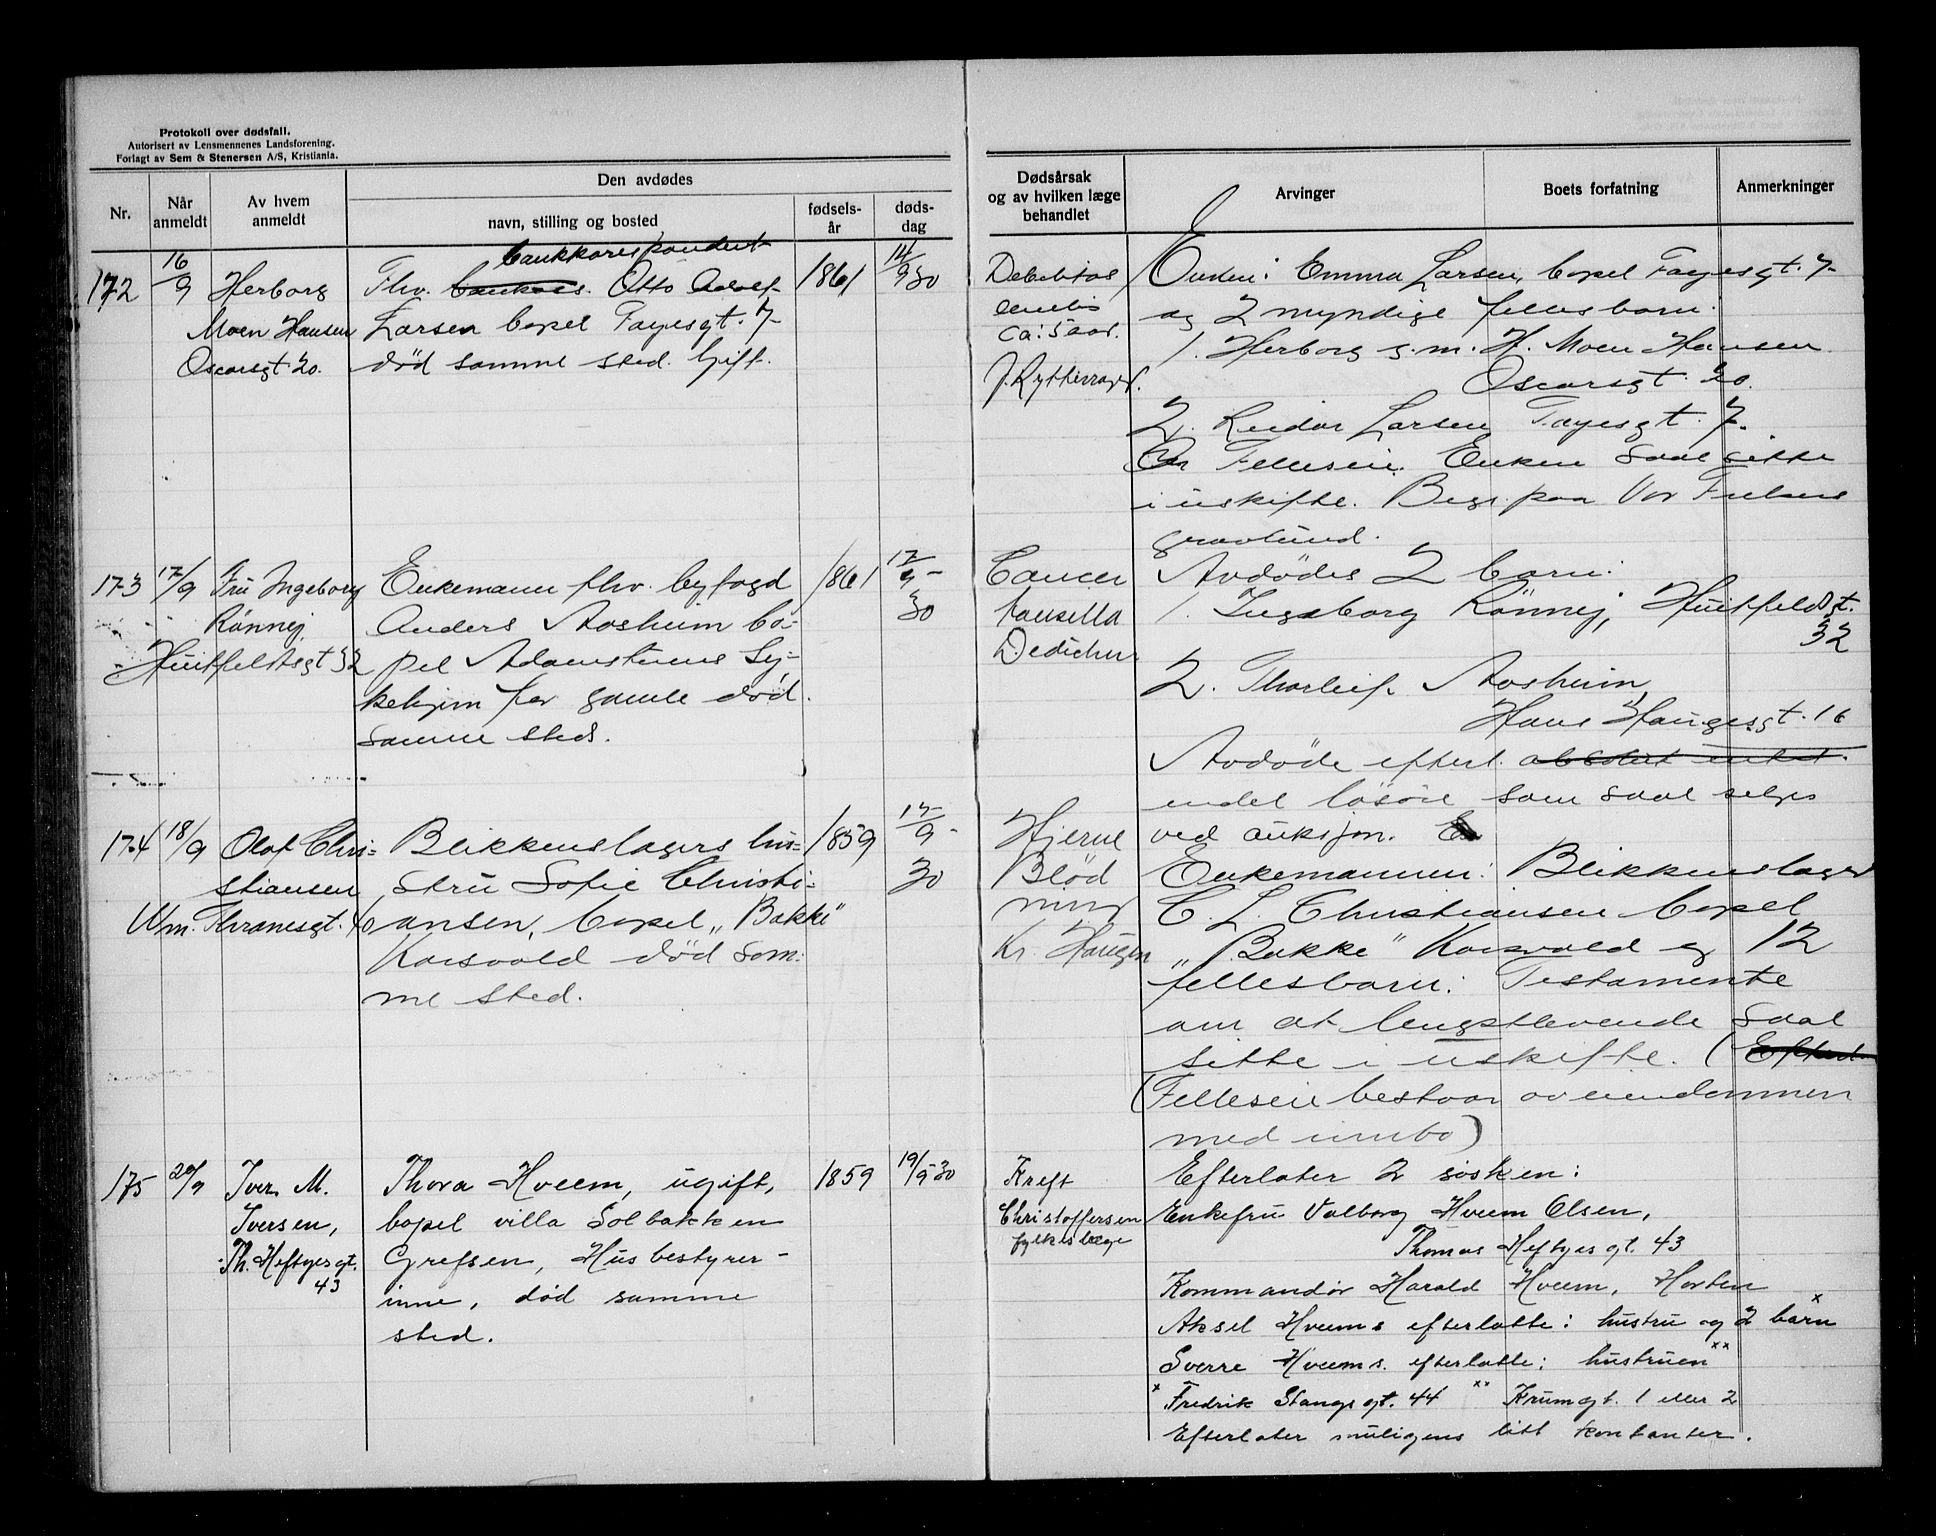 Protokoll over dødsfall.
Autorisert av Lensmennenes Landsforening.
Forlagt av Sem & Stenersen A/S, Kristiania.
Nr.
Når anmeldt
Av hvem anmeldt
Den avdødes
navn, stilling og bosted
fødsels-år
døds-dag
Dødsårsak
og av hvilken læge
behandlet
Arvinger
Boets forfatning
Anmerkninger
172
16/9
Herborg
Moen Hansen
Oscarsgt. 20.
bankkorespondent
Fhv. Otto Adolf
Larsen bopel Fayesgt. 7
død samme sted. Gift.
1861
14/9 30
ca: 5 aar.
Enken: Emma Larsen, bopel Fayesgt. 7
og 2 myndige fellesbarn:
1. Herborg g.m. H. Moen Hansen
Oscarsgt. 20.
2. Reidar Larsen Fayesgt. 7.
Felleseie. Enken skal sitte
i uskifte. Begr. paa Vor Frelsers
gravlund.
173
17/9
Fru Ingeborg
Rönnej
Huitfeldtsgt 32
Enkemann fhv. byfogd
Anders Aasheim bo-
pel Adamstuens Sy-
kehjem for gamle död
samme sted.
1861
17/9 -
30
Cancer
Dedichen
Avdödes 2 barn:
1. Ingeborg Rönnej, Huitfeldsgt.
32
2. Thorleif Aasheim,
Hans Haugesgt. 16
Avdöde efterl. absolut intet.
endel lösöre som skal selges
ved auksjon.
174
18/9
Olaf Chri-
stiansen
Wm. Thranesgt. 40
Blikkenslagers hu-
stru Sofie Christi-
ansen, bopel „Bakke"
Korsvold död sam-
me sted.
1859
17/9 -
30
Hjerne
Blöd
ning
Kr. Haugen
Enkemannen: Blikkenslager
C. L. Christiansen bopel
„Bakke" Korsvold og 12
fellesbarn: Testamente
om at lengstlevende skal
sitte i uskifte. (Efterl.
(Felleseie bestaar av eiendommen
med innbo)
175
20/9
Iver M.
Iversen,
Th. Heftyesgt.
43
Thora Hveem, ugift,
bopel villa Solbakken
Grefsen, Husbestyrer-
inne, død samme
sted.
1859
19/9 30
Kreft
Christoffersen
fylkislæge
Efterlater 2 søsken:
Enkefru Valborg Hveem Olsen,
Thomas Heftyesgt. 43
Kommandør Harald Hveem, Horten
Aksel Hveems efterlatte: hustru og 2 barn x
Sverre Hveems efterlatte: hustruen xx
x Fredrik Stangs gt. 44 xx Krumgt. 1 eller 2
Efterlater muligens litt kontanter.